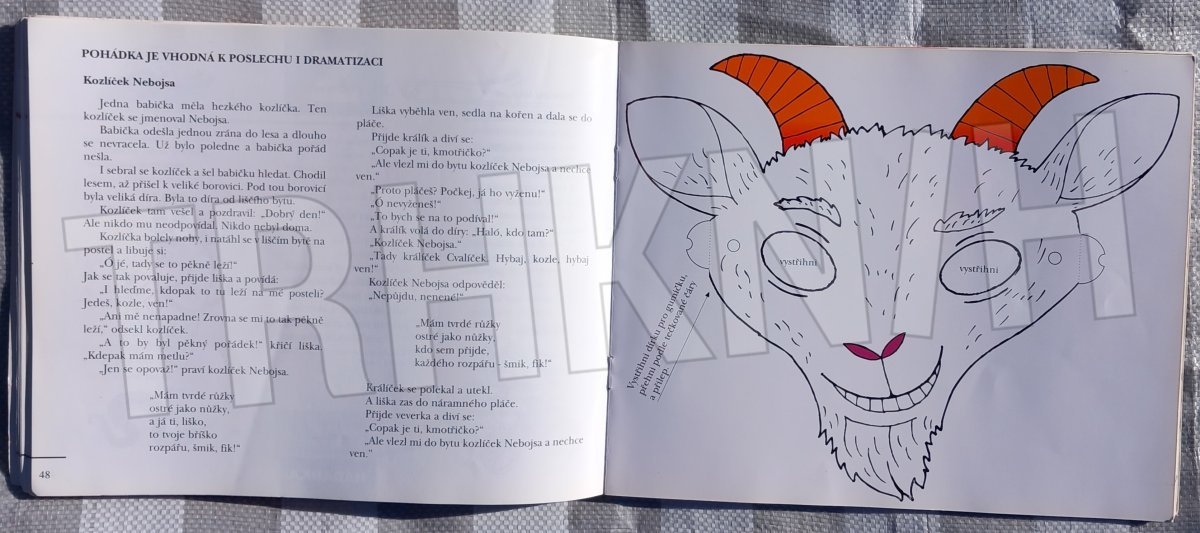 POHÁDKA JE VHODNÁ K POSLECHU I DRAMATIZACI
Kozlíček Nebojsa
Jedna babička měla hezkého kozlíčka. Ten
kozlíček se jmenoval Nebojsa.
Babička odešla jednou zrána do lesa a dlouho
se nevracela. Už bylo poledne a babička pořád
nešla.
I sebral se kozlíček a šel babičku hledat. Chodil
lesem, až přišel k veliké borovici. Pod tou borovicí
byla veliká díra. Byla to díra od liščího bytu.
Kozlíček tam vešel a pozdravil: „Dobrý den!“
Ale nikdo mu neodpovídal. Nikdo nebyl doma.
Kozlíčka bolely nohy, i natáhl se v liščím bytě na
postel a libuje si:
„Ó jé, tady se to pěkně leží!“
Jak se tak povaluje, přijde liška a povídá:
„I hleďme, kdopak to tu leží na mé posteli?
Jedeš, kozle, ven!“
„Ani mě nenapadne! Zrovna se mi to tak pěkně
leží,“ odsekl kozlíček.
„A to by byl pěkný pořádek!“ křičí liška.
„Kdepak mám metlu?“
„Jen se opovaž!“ praví kozlíček Nebojsa.
„Mám tvrdé růžky
ostré jako nůžky,
a já ti, liško,
to tvoje bříško
rozpářu, šmik, fik!“
48
Liška vyběhla ven, sedla na kořen a dala se do
pláče.
Přijde králík a diví se:
„Copak je ti, kmotřičko?“
„Ale vlezl mi do bytu kozlíček Nebojsa a nechce
ven.“
„Proto pláčeš? Počkej, já ho vyženu!“
„Ó nevyženeš!“
„To bych se na to podíval!“
A králík volá do díry: „Haló, kdo tam?“
„Kozlíček Nebojsa.“
„Tady králíček Cvalíček. Hybaj, kozle, hybaj
ven!“
Kozlíček Nebojsa odpověděl:
„Nepůjdu, nenené!“
„Mám tvrdé růžky
ostré jako nůžky,
kdo sem přijde,
každého rozpářu - šmik, fik!“
Králíček se polekal a utekl.
A liška zas do náramného pláče.
Přijde veverka a diví se:
„Copak je ti, kmotřičko?“
„Ale vlezl mi do bytu kozlíček Nebojsa a nechce
ven.“
vystřihni
vystřihni
Vystřihni dírku pro gumičku,
přehni podle tečkované čáry
a přilep.
TRHKNIH